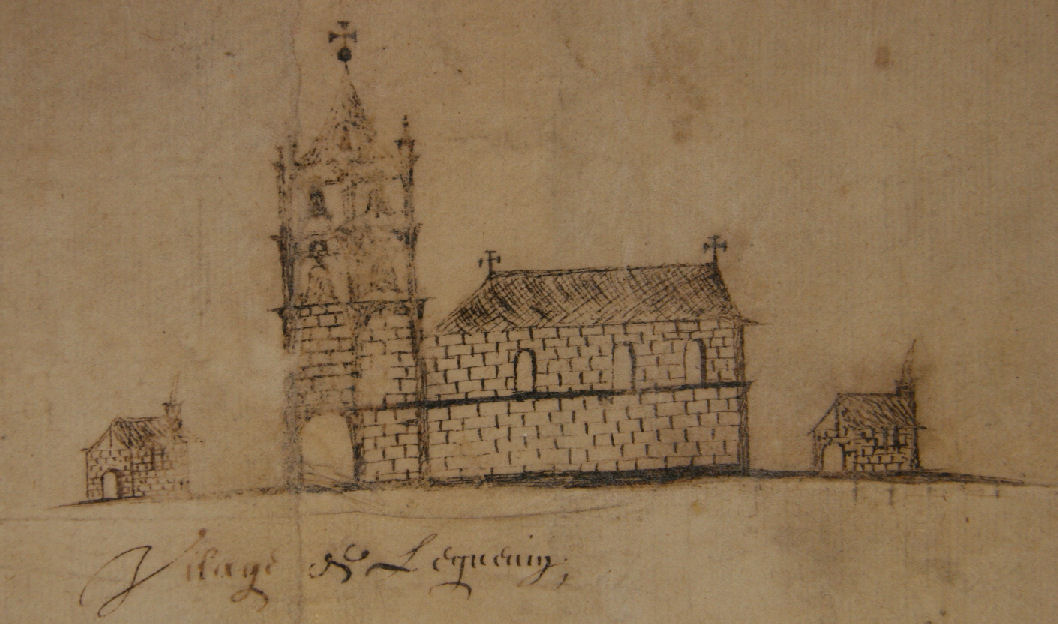 Vilage de Lequeuin,